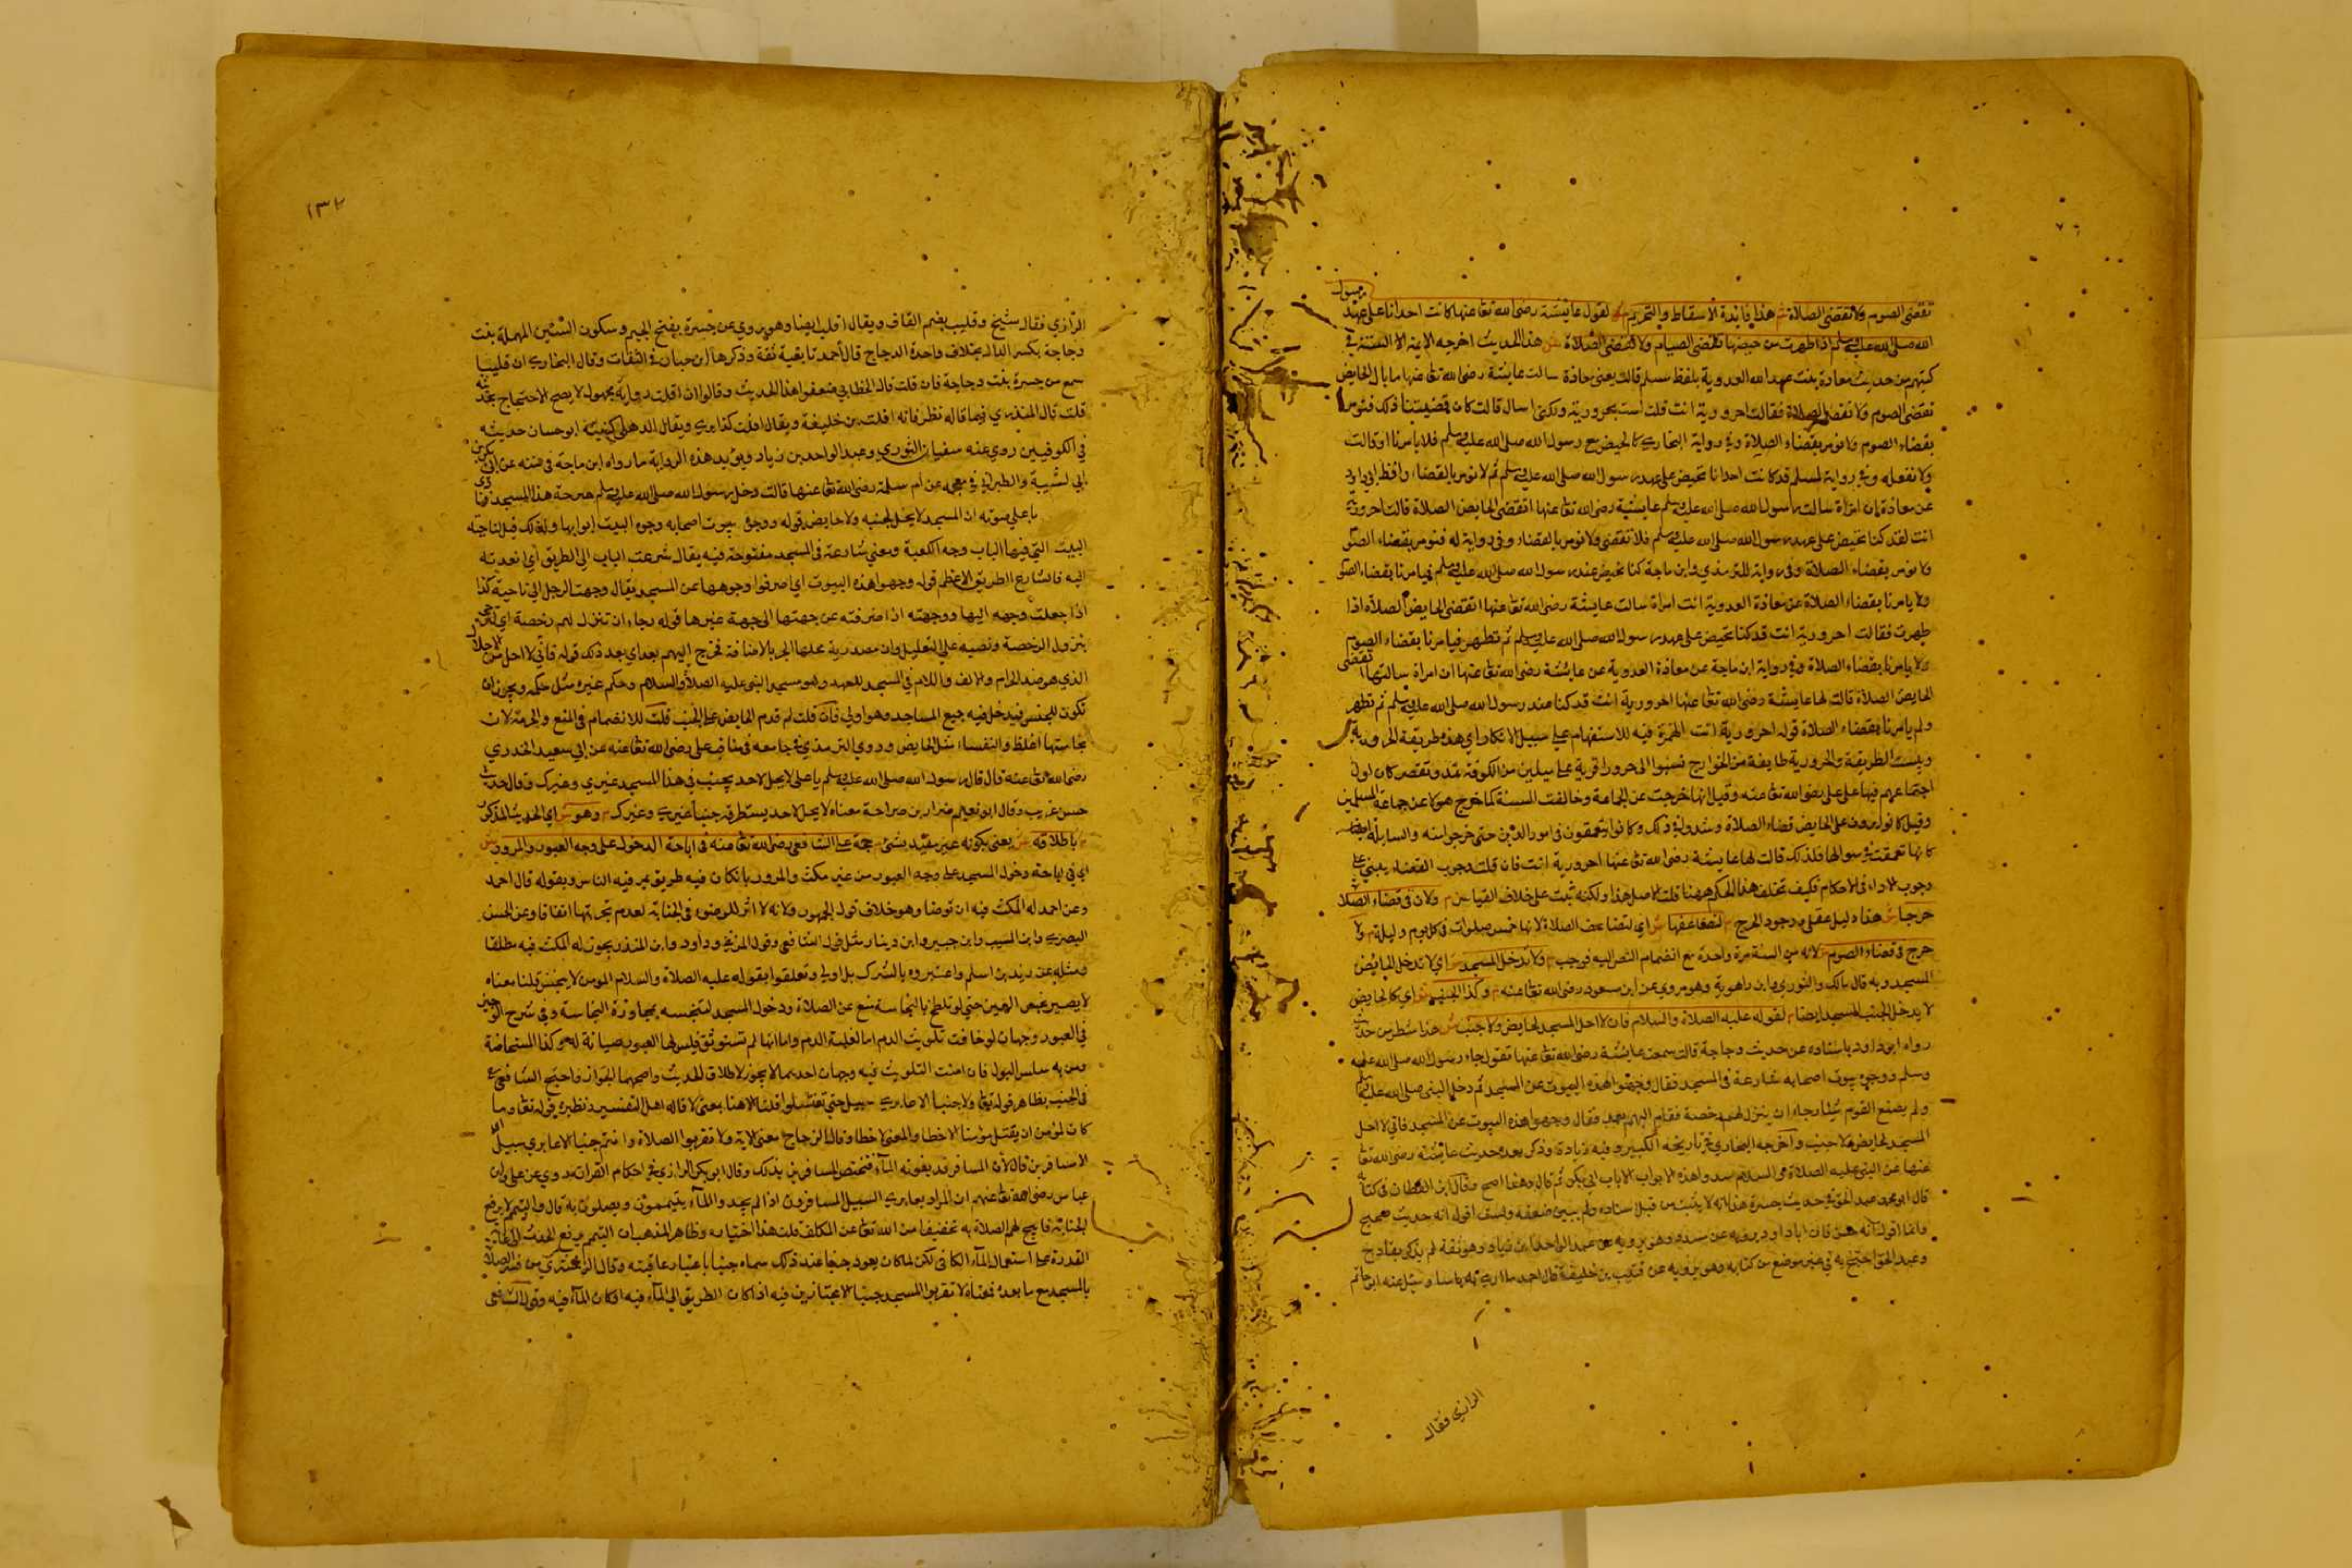 رسول
تقضي الصوم ولا تقضي الصلاة ش هذا فائدة الاسقاط والتحريم م لقول عائشة رضي الله تعا عنها كانت احدانا على عهد
الله صلى الله عليه وسلم اذا طهرت من حيضها تقضي الصيام ولا تقضي الصلاة ش هذا الحديث اخرجه الايمة الستة في
كتبهم من حديث معاذة بنت عبد الله العدوية بلفظ مسلم قالت يعني معاذة سالت عايشة رضي الله تعا عنها ما بال الحايض
تقضي الصوم ولا تقضي الصلاة فقالت احرورية انت قلت لست بحرورية ولكني اسال قالت كان يصيبنا ذلك فنومر
بقضاء الصوم ولا نومر بقضاء الصلاة وفي رواية البخاري كنا نحيض مع رسول الله صلى الله عليه وسلم فلا يامرنا او قالت
ولا نفعله وفي رواية لمسلم قد كانت احدانا تحيض على عهد رسول الله صلى الله عليه وسلم ثم لا نومر بالقضاء ولفظ ابي داود
عن معاذة ان امراة سالت عايشة رضي الله تعا عنها اتقضي الحايض الصلاة قالت احرورية
انت لقد كنا نحيض على عهد رسول الله صلى الله عليه وسلم فلا نقضي ولا نومر بالقضاء وفي رواية له فنومر بقضاء الصوم
ولا نومر بقضاء الصلاة وفي رواية للترمذي وابن ماجة كنا نحيض عند رسول الله صلى الله عليه وسلم فيامرنا بقضاء الصوم
ولا يامرنا بقضاء الصلاة عن معاذة العدوية انت امراة سالت عايشة رضي الله تعا عنها اتقضي الحايض الصلاة اذا
طهرت فقالت احرورية انت قد كنا نحيض على عهد رسول الله صلى الله عليه وسلم ثم نطهر فيامرنا بقضاء الصوم
ولا يامرنا بقضاء الصلاة وفي رواية ابن ماجة عن معاذة العدوية عن عائشة رضي الله تعا عنها ان امراة سالتها اتقضي
الحايض الصلاة قالت لها عايشة رضي الله تعا عنها احرورية انت قد كنا عند رسول الله صلى الله عليه وسلم ثم نطهر
ولم يامرنا بقضاء الصلاة قوله احرورية انت الهمزة فيه للاستفهام على سبيل الانكار اي هذه طريقة الحرورية
وبئست الطريقة والحرورية طايفة من الخوارج نسبوا الى حرورا قرية على ميلين من الكوفة تمد وتقصر كان اول
اجتماعهم فيها على علي رضي الله تعا عنه وقيل انها خرجت عن الجماعة وخالفت السنة كما خرج هولا عن جماعة المسلمين
وقيل كانوا يرون على الحايض قضاء الصلاة وشددوا في ذلك وكانوا يتعمقون في امور الدين حتى خرجوا منه والسايلة ايضا
كانها تعمقت في سوالها فلذلك قالت لها عايشة رضي الله تعا عنها احرورية انت فان قلت وجوب القضاء يبني على
وجوب الاداء في الاحكام فكيف تخلف هذا الحكم ههنا قلت الاصل هذا ولكنه ثبت على خلاف القياس م ولان في قضاء الصلاة
حرجا ش هذا دليل عقلي وجود الحرج م لتضاعفها ش اي لتضاعف الصلاة لانها خمس صلوات في كل يوم وليلة م ولا
حرج في قضاء الصوم ش لانه في السنة مرة واحدة مع انضمام النص اليه فوجب م ولا تدخل المسجد ش اي لا تدخل الحايض
المسجد وبه قال مالك والثوري وابن راهوية وهو مروي عن ابن مسعود رضي الله تعا عنه م وكذا الجنب ش اي كالحايض
لا يدخل الجنب المسجد ايضا م لقوله عليه الصلاة والسلام فاني لا احل المسجد لحايض ولا جنب ش هذا شطر من حديث
رواه ابو داود باسناده عن حديث دجاجة قالت سمعت عايشة رضي الله تعا عنها تقول جاء رسول الله صلى الله عليه
وسلم ووجوه بيوت اصحابه شارعة في المسجد فقال وجهوا هذه البيوت عن المسجد ثم دخل النبي صلى الله عليه وسلم
ولم يصنع القوم شيئا رجاء ان ينزل لهم رخصة فقام اليهم بعد فقال وجهوا هذه البيوت عن المسجد فاني لا احل
المسجد لحايض ولا جنب واخرجه البخاري في تاريخه الكبير وفيه زيادة وذكر بعده حديث عائشة رضي الله تعا
عنها عن النبي عليه الصلاة والسلام سدوا هذه الابواب الا باب ابي بكر ثم قال وهذا اصح وقال ابن القطان في كتابه
قال ابو محمد عبد الحق في حديث جسرة هذا انه لا يثبت من قبل اسناده ولم يبين ضعفه ولست اقول انه حديث صحيح
وانما اقول انه حسن فان ابا داود يرويه عن مسدد وهو يرويه عن عبد الواحد ابن زياد وهو ثقة لم يذكر بقادح
وعبد الحق احتج به في غير موضع من كتابه وهو يرويه عن فليت بن خليفة قال احمد ما ارى به باسا وسئل عنه ابو حاتم
الرازي فقال
١٣٢
الرازي فقال شيخ وقليب بضم القاف ويقال افليت ايضا وهو يروي عن جسرة بفتح الجيم وسكون السين المهملة بنت
دجاجة بكسر الدال بخلاف واحدة الدجاج قال احمد تابعية ثقة وذكرها ابن حبان في الثقات وقال البخاري ان قليبا
سمع من جسرة بنت دجاجة فان قلت قال الخطابي ضعفوا هذا الحديث وقالوا ان افلت راويه مجهول لا يصح الاحتجاج بحديثه
قلت قال المنذري فيما قاله نظر فانه افلت بن خليفة ويقال افلت العامري ويقال الذهلي كنيته ابو حسان حديثه
في الكوفيين روى عنه سفيان الثوري وعبد الواحد بن زياد ويؤيد هذه الرواية ما رواه ابن ماجة في سننه عن ابي بكر بن
ابي شيبة والطبراني في معجمه عن ام سلمة رضي الله تعا عنها قالت دخل رسول الله صلى الله عليه وسلم صرحة هذا المسجد فنادى
باعلى صوته ان المسجد لا يحل لجنب ولا حايض قوله ووجوه بيوت اصحابه وجوه البيت ابوابها ولذلك قيل لناحية
البيت التي فيها الباب وجه الكعبة ومعنى شارعة في المسجد مفتوحة فيه يقال شرعت الباب الى الطريق اي انفذته
اليه فالشارع الطريق الاعظم قوله وجهوا هذه البيوت اي اصرفوا وجوهها عن المسجد يقال وجهت الرجل الى ناحية كذا
اذا جعلت وجهه اليها ووجهته اذا صرفته عن جهتها الى جهة غيرها قوله رجاء ان تنزل لهم رخصة اي لترجي
نزول الرخصة ونصبه على التعليل وان مصدرية محلها الجر بالاضافة فخرج اليهم بعد اي بعد ذلك قوله فاني لا احل من الاحلال
الذي هو ضد الحرام والالف واللام في المسجد للعهد وهو مسجد النبي عليه الصلاة والسلام وحكم غيره مثل حكمه ويجوز ان
تكون للجنس فيدخل فيه جميع المساجد وهو اولى فان قلت لم قدم الحايض على الجنب قلت للانضمام في المنع والحرمة لان
نجاستها اغلظ والنفساء مثل الحايض وروى الترمذي في جامعه في مناقب علي رضي الله تعا عنه عن ابي سعيد الخدري
رضي الله تعا عنه قال قال رسول الله صلى الله عليه وسلم يا علي لا يحل لاحد يجنب في هذا المسجد غيري وغيرك وقال حديث
حسن غريب وقال ابو نعيم ضرار بن صراحة معناه لا يحل لاحد يستطرقه جنبا غيري وغيرك م وهو ش اي الحديث المذكور
م باطلاقه ش يعني بكونه غير مقيد بشئ م حجة على الشافعي رضي الله تعا عنه في اباحة الدخول على وجه العبور والمرور ش
اي في اباحة دخول المسجد على وجه العبور من غير مكث والمرور بان كان فيه طريق يمر فيه الناس وبقوله قال احمد
وعن احمد له المكث فيه ان توضا وهو خلاف قول الجمهور ولانه لا اثر للوضوء في الجنابة لعدم تجزيها اتفاقا وعن الحسن
البصري وابن المسيب وابن جبير وابن دينار مثل قول الشافعي وقول المزني وداود وابن المنذر يجوز له المكث فيه مطلقا
ومثله عن زيد بن اسلم واعتبروه بالشرك بل اولى وتعلقوا بقوله عليه الصلاة والسلام المومن لا ينجس قلنا معناه
لا يصير نجس العين حتى لو تلطخ بالنجاسة يمنع عن الصلاة ودخول المسجد لتنجسه بمجاورة النجاسة وفي شرح الوجيز
في العبور وجهان لو خافت تلويث الدم اما لغلبة الدم واما انها لم تستوثق فليس لها العبور صيانة له وكذا المستحاضة
ومن به سلس البول فان امنت التلويث فيه وجهان احدهما لا يجوز لاطلاق الحديث واصحهما الجواز واحتج الشافعي
في الجنب بظاهر قوله تعا ولا جنبا الا عابري سبيل حتى تغتسلوا قلنا الا هنا بمعنى لا قاله اهل التفسير ونظيره قوله تعا وما
كان لمؤمن ان يقتل مؤمنا الا خطا والمعنى لا خطا وقال الزجاج معنى الاية ولا تقربوا الصلاة وانتم جنبا الا عابري سبيل
الا مسافرين قال لان المسافر قد يفوته الماء فتختص المسافرين بذلك وقال ابو بكر الرازي في احكام القرآن روي عن علي وابن
عباس رضي الله تعا عنهم ان المراد بعابري السبيل المسافرون اذا لم يجد والماء يتيممون ويصلون به قال والتيمم لا يرفع
الجنابة فابيح لهم الصلاة به تخفيفا من الله تعا عن المكلف قلت هذا اختياره وظاهر المذهب ان التيمم يرفع الحدث الى غاية
القدرة على استعمال الماء الكافي لكن لما كان يعود جنبا عند ذلك سماه جنبا باعتبار عاقبته وقال الزمخشري من فسر الصلاة
بالمسجد مع ما بعده فمعناه لا تقربوا المسجد جنبا الا مجتازين فيه اذا كان الطريق الى الماء فيه او كان الماء فيه وقول الشافعي